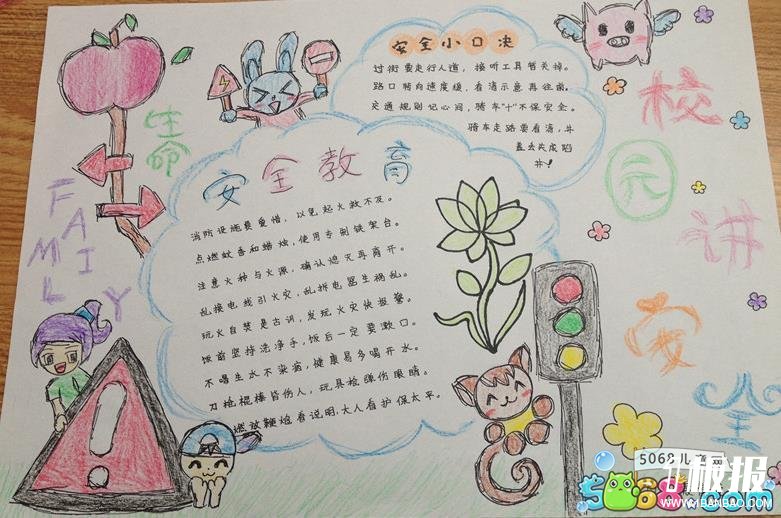 安全小口决
过街要走行人道，接听工具暂关掉。
路口转向速度缓，看清示意再往南。
交通规则记心间，骑车"十"不保安全。
骑车走路要看清，井
盖丢失成陷
井！
生命
FAMILY
安全教育
消防设施要爱惜，以免起火救不及。
点燃蚊香和蜡烛，使用专制铁架台。
注意火种与火源，确认熄灭再离开。
乱接电线引火灾，乱拆电器生祸乱。
玩火自焚是古训，发现火灾快报警。
饭前坚持洗净手，饭后一定要漱口。
不喝生水不染病，健康易多喝开水。
刀枪棍棒皆伤人，玩具枪弹伤眼睛。
燃放鞭炮看说明，大人看护保太平。
校园讲安全
5068儿童网
板报
5068.com
WWW.41BANBAO.COM